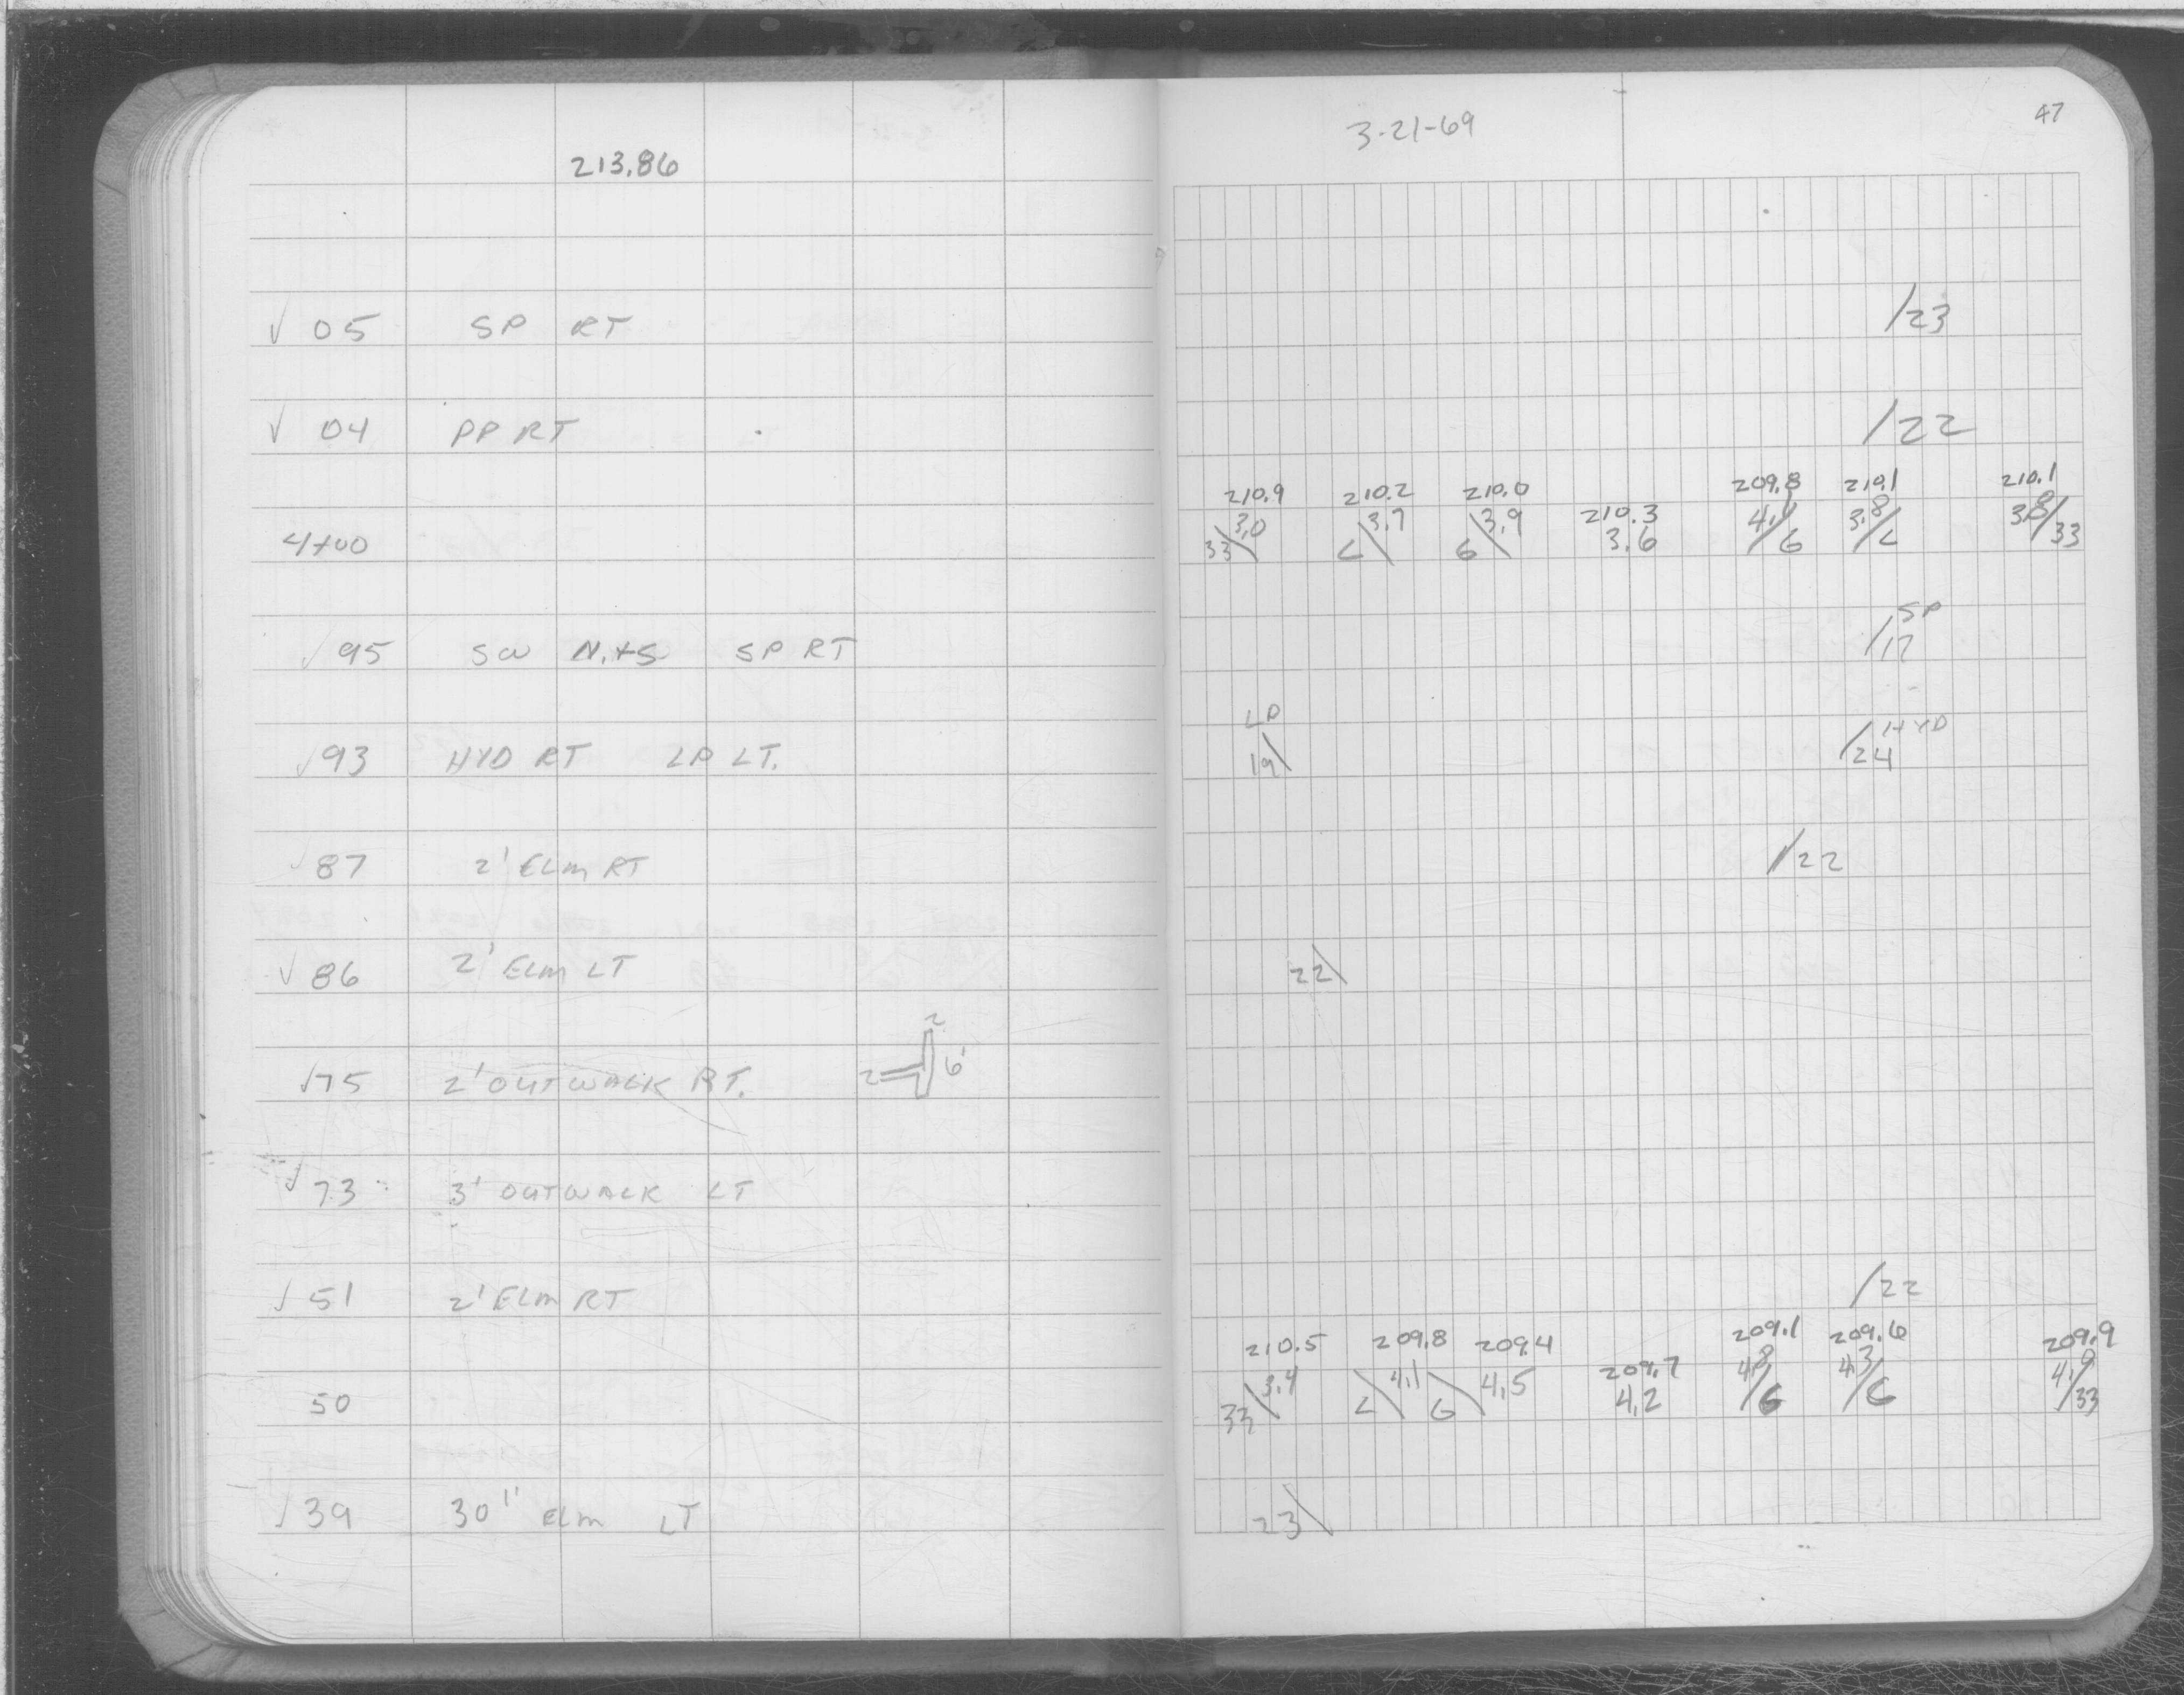 213.86
3-21-69
47
√ 05 SP RT /23
√ 04 PP RT /22
210.9 210.2 210.0 210.3 209.8 210.1 210.1
4+00 33\3.0 C\3.7 G\3.9 3.6 4.1/G 3.8/C 3.8/33
√ 95 SW N.+S SP RT /17 SP
LP HYD
√ 93 HYD RT LP LT. 19\ /24
√ 87 2' ELM RT /22
√ 86 2' ELM LT 22\
2
√ 75 2' OUTWALK RT. 2 6'
√ 73 3' OUTWALK LT
√ 51 2' ELM RT /22
210.5 209.8 209.4 209.7 209.1 209.6 209.9
50 33\3.4 C\4.1 G\4.5 4.2 4.8/G 4.3/C 4.0/33
√ 39 30" ELM LT 23\